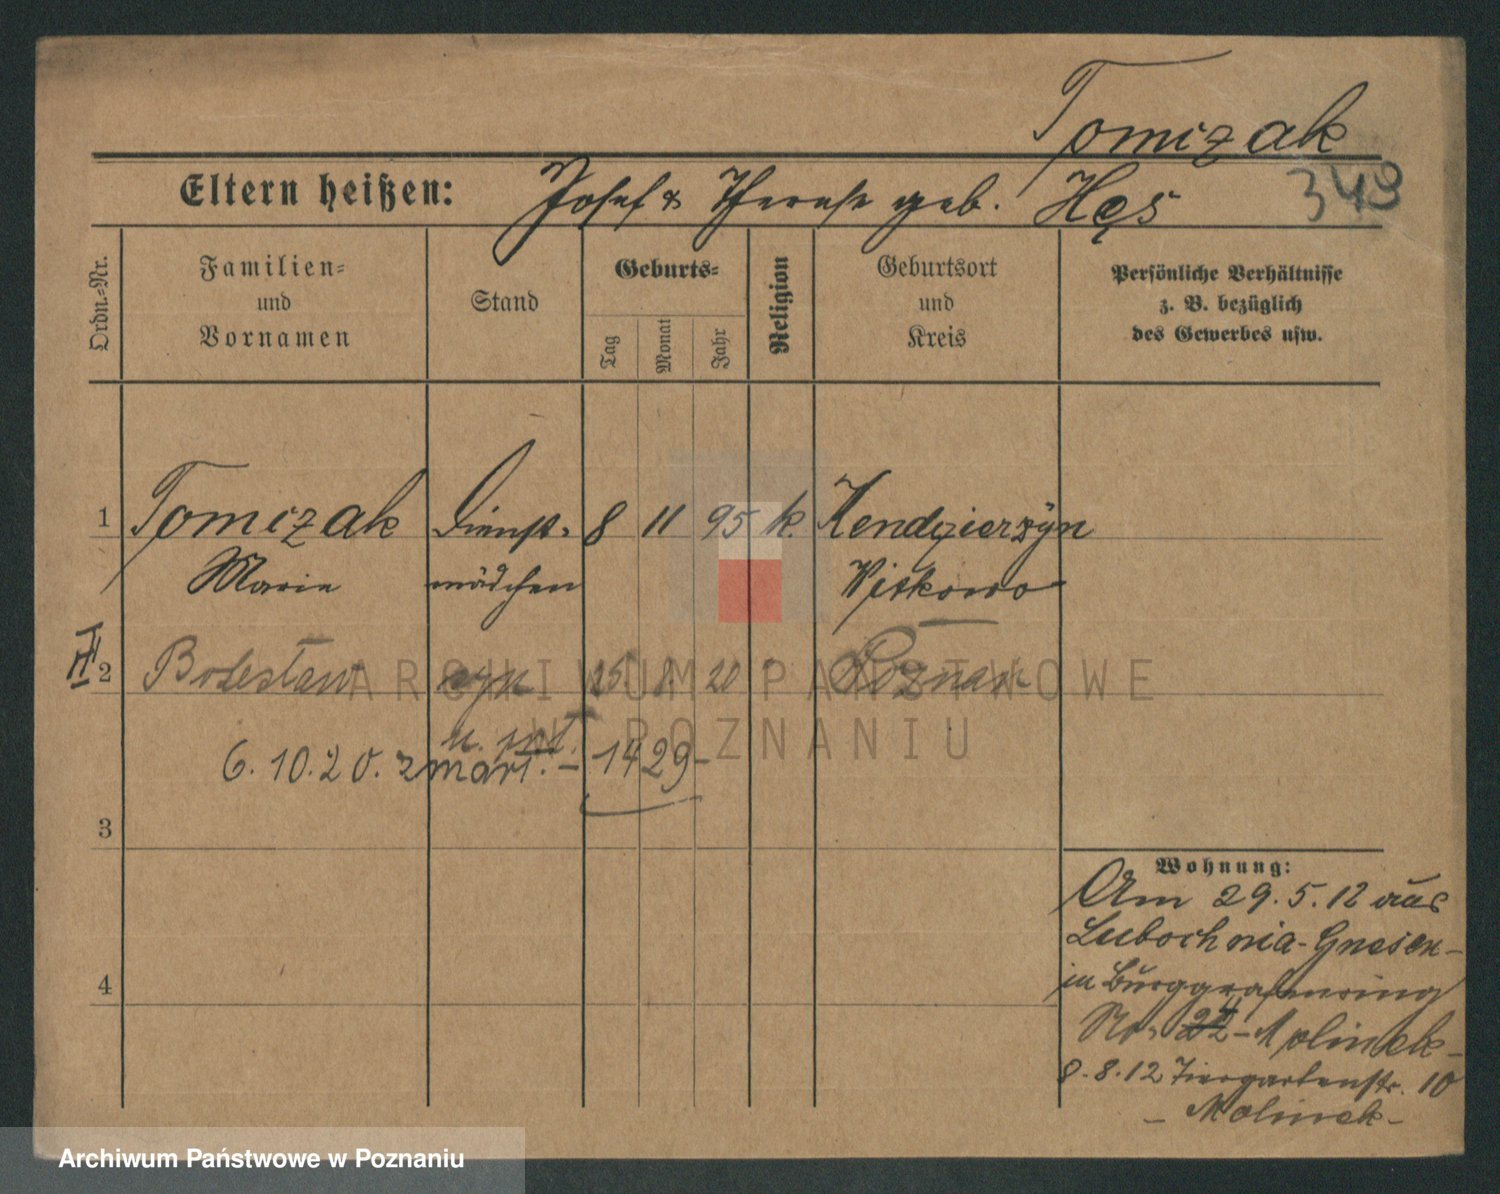 Tomczak
Eltern heißen: Josef & Therese geb. Hęs
349
Ordn.-Nr.
Familien-
und
Vornamen
Stand
Geburts-
Tag
Monat
Jahr
Religion
Geburtsort
und
Kreis
Persönliche Verhältnisse
z. B. bezüglich
des Gewerbes usw.
1 Tomczak Dienst- 8 11 95 k. Kendzierzyn
Marie mädchen Witkowo
II 2 Bolesław syn 25 8. 20 Poznań
6.10.20. zmarł. - 1429-
3
4
Wohnung:
Am 29.5.12 aus
Lubochnia-Gnesen-
in Burggrafenring
No. Molinek-
8.8.12 Tiergartenstr. 10
- Molinek-
ARCHIWUM PAŃSTWOWE
W POZNANIU
Archiwum Państwowe w Poznaniu